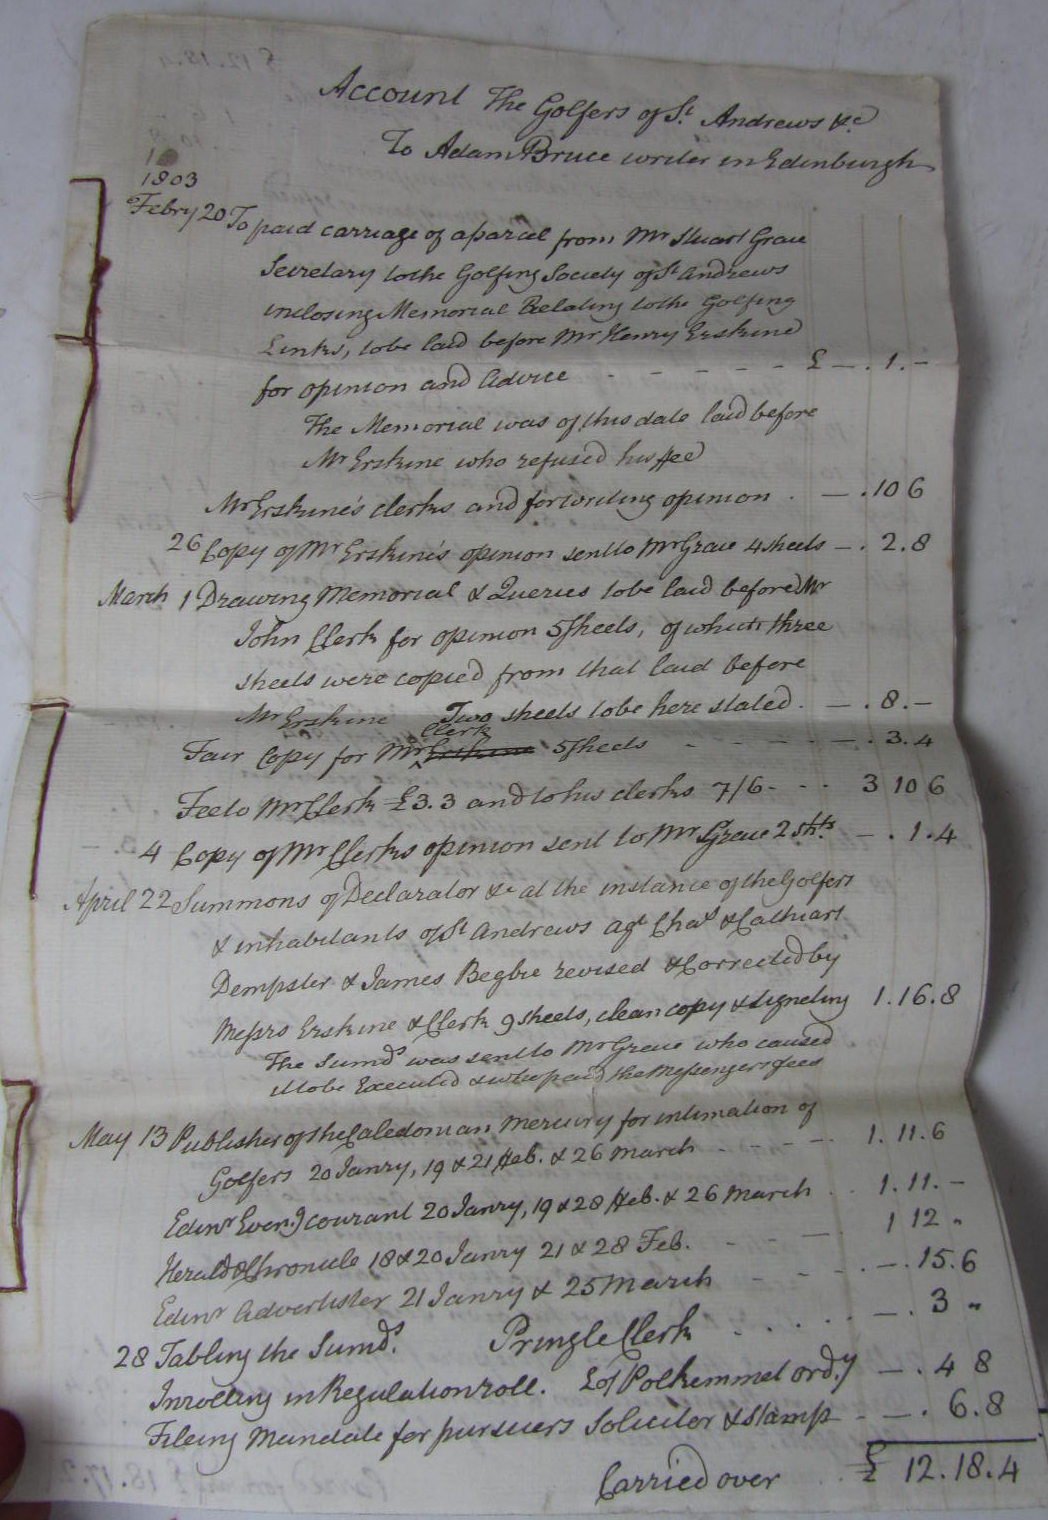 Account The Golfers of St. Andrews &c
To Adam Bruce writer in Edinburgh
1803
Febry 20 To paid carriage of a parcel from Mr Stuart Grace
Secretary to the Golfing Society of St Andrews
inclosing Memorial Relating to the Golfing
Links, to be laid before Mr Henry Erskine
for opinion and advice - - - - - £ - . 1 . -
The Memorial was of this date laid before
Mr Erskine who refused his fee
Mr Erskine's clerks and for writing opinion . - . 10 6
26 Copy of Mr Erskine's opinion sent to Mr Grace 4 sheets - . 2 . 8
March 1 Drawing Memorial & Queries to be laid before Mr
John Clerk for opinion 5 sheets, of which three
sheets were copied from that laid before
Mr Erskine Two sheets to be here stated . - . 8 . -
Clerk
Fair Copy for Mr Erskine 5 sheets - - - - - - . 3 . 4
Fee to Mr Clerk £3.3 and to his clerks 7/6 - - - 3 10 6
4 Copy of Mr Clerks opinion sent to Mr Grace 2 shts - . 1 . 4
April 22 Summons of Declarator &c at the instance of the Golfers
& inhabitants of St Andrews agt Chas & Cathcart
Dempster & James Begbie revised & Corrected by
Messrs Erskine & Clerk 9 sheets, clean copy & signeting 1 . 16 . 8
The Sumds was sent to Mr Grace who caused
it to be Executed & who paid the Messengers fees
May 13 Publisher of the Caledonian Mercury for intimation of
Golfers 20 Janry, 19 & 21 Feb. & 26 March - - - - 1 . 11 . 6
Edinr Eveng courant 20 Janry, 19 & 28 Feb. & 26 March . . 1 . 11 . -
Herald & Chronicle 18 & 20 Janry 21 & 28 Feb. - - - 1 12 "
Edinr Advertister 21 Janry & 25 March - - - . - . 15 . 6
28 Tabling the Sumds. Pringle Clerk . . . . . - . 3 "
Inrolling in Regulation roll. Ld Polkemmet ordy - . 4 8
Fileing Mandate for pursuers Solicitor & stamp - - . 6 . 8
Carried over £ 12 . 18 . 4